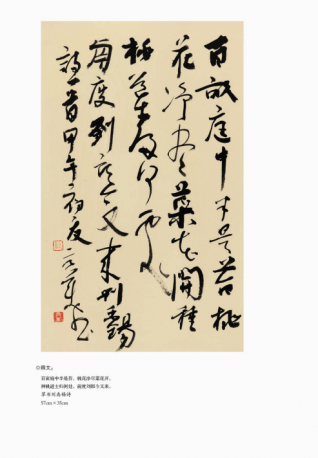 百畝庭中半是苔桃
花净尽菜花開種
桃道士歸何處
前度劉郎又来刘禹錫
詩一首甲午初夏
◎释文。
百亩庭中半是苔，桃花净尽菜花开。
种桃道士归何处，前度刘郎今又来。
草书刘禹锡诗
57cm×35cm